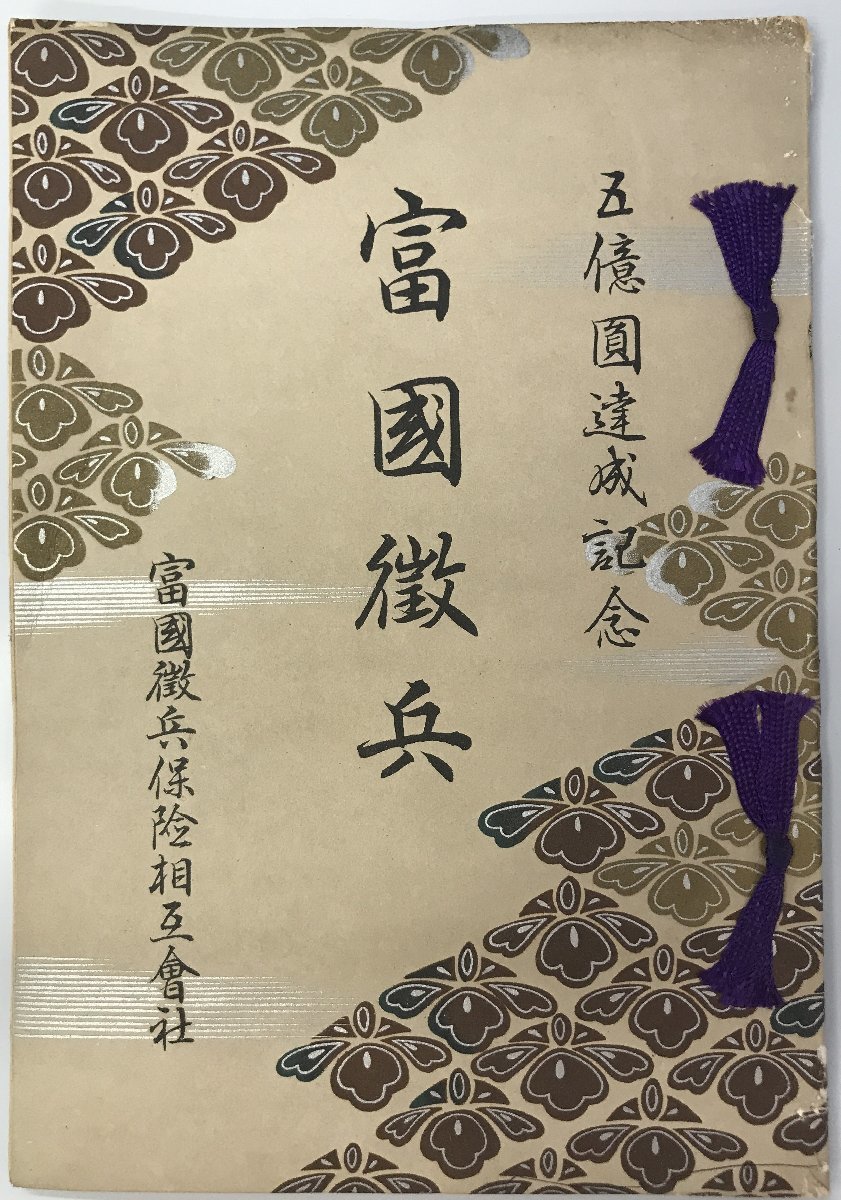 五億圓達成記念
富國徴兵
富國徴兵保險相互會社